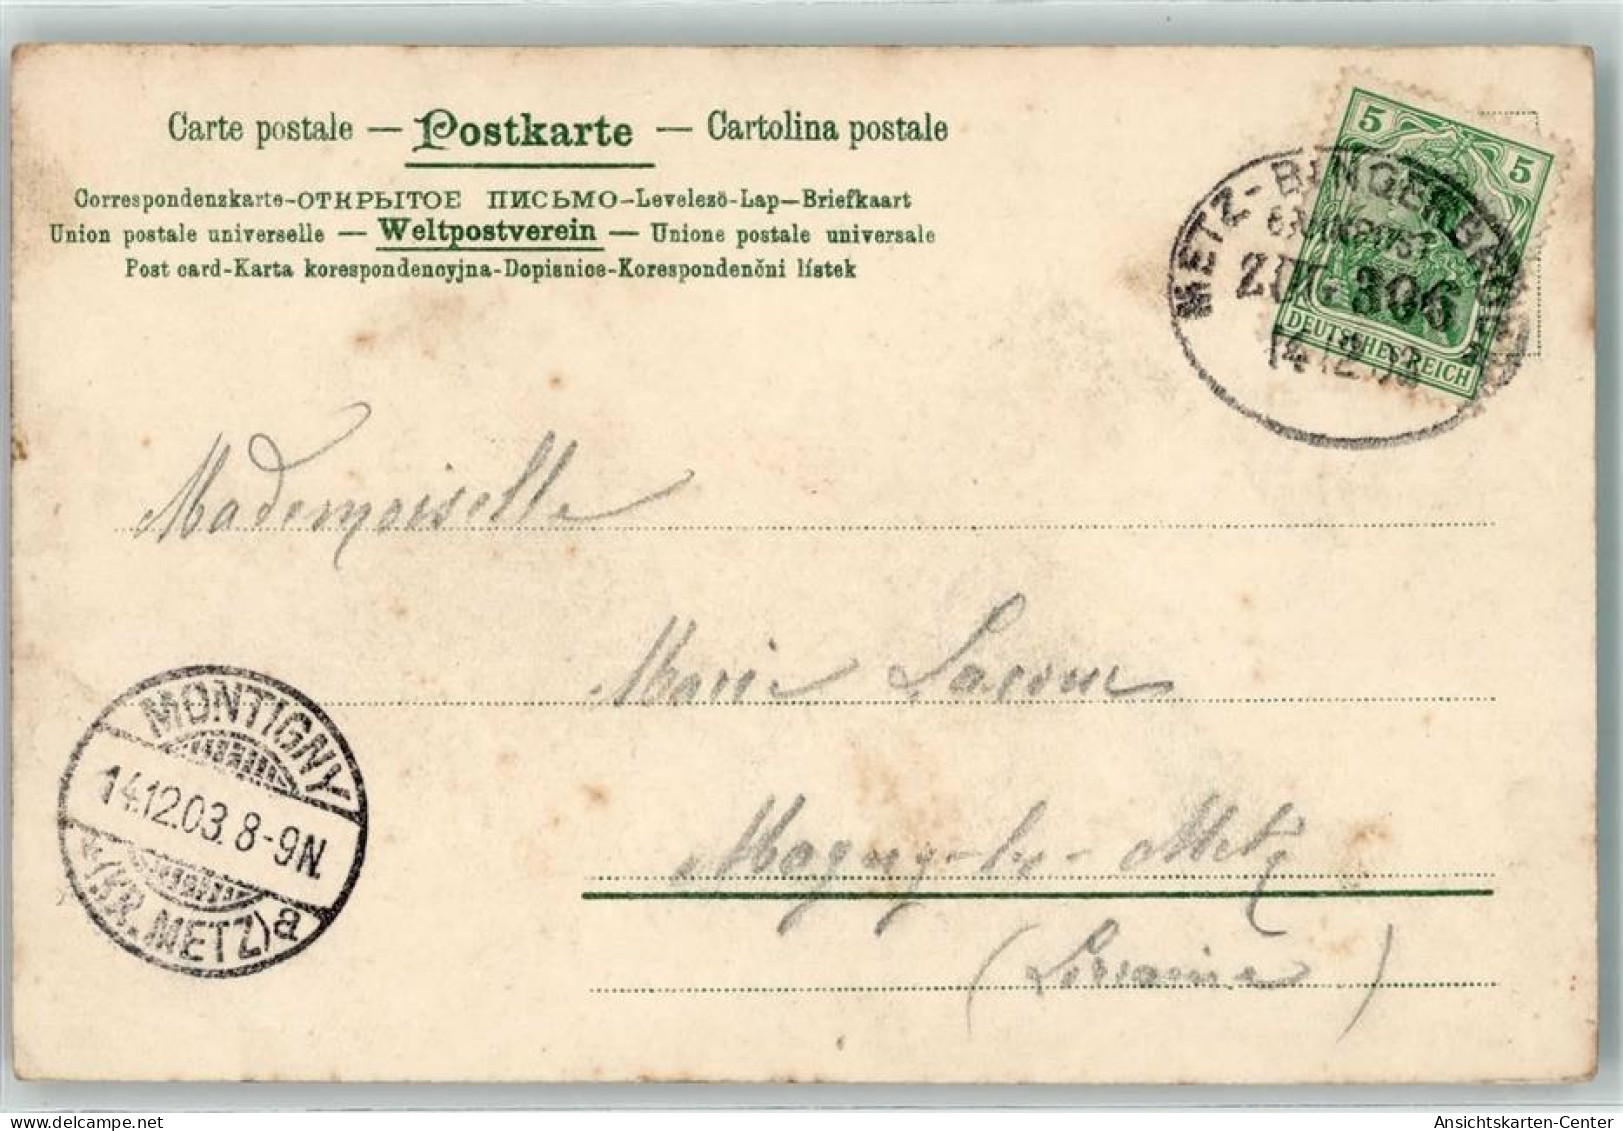 Carte postale — Postkarte — Cartolina postale
Correspondenzkarte-ОТКРЫТОЕ ПИСЬМО-Levelező-Lap-Briefkaart
Union postale universelle — Weltpostverein — Unione postale universale
Post card-Karta korespondencyjna-Dopisnice-Korespondenčni listek
5 5
DEUTSCHES REICH
METZ-BINGERBRÜCK
BAHNPOST
ZUG 306
14.12.03
Mademoiselle
Marie Lacour
Magny-les-Metz
(Lorraine)
MONTIGNY
14.12.03. 8-9N.
(KR. METZ) a
Ansichtskarten-Center